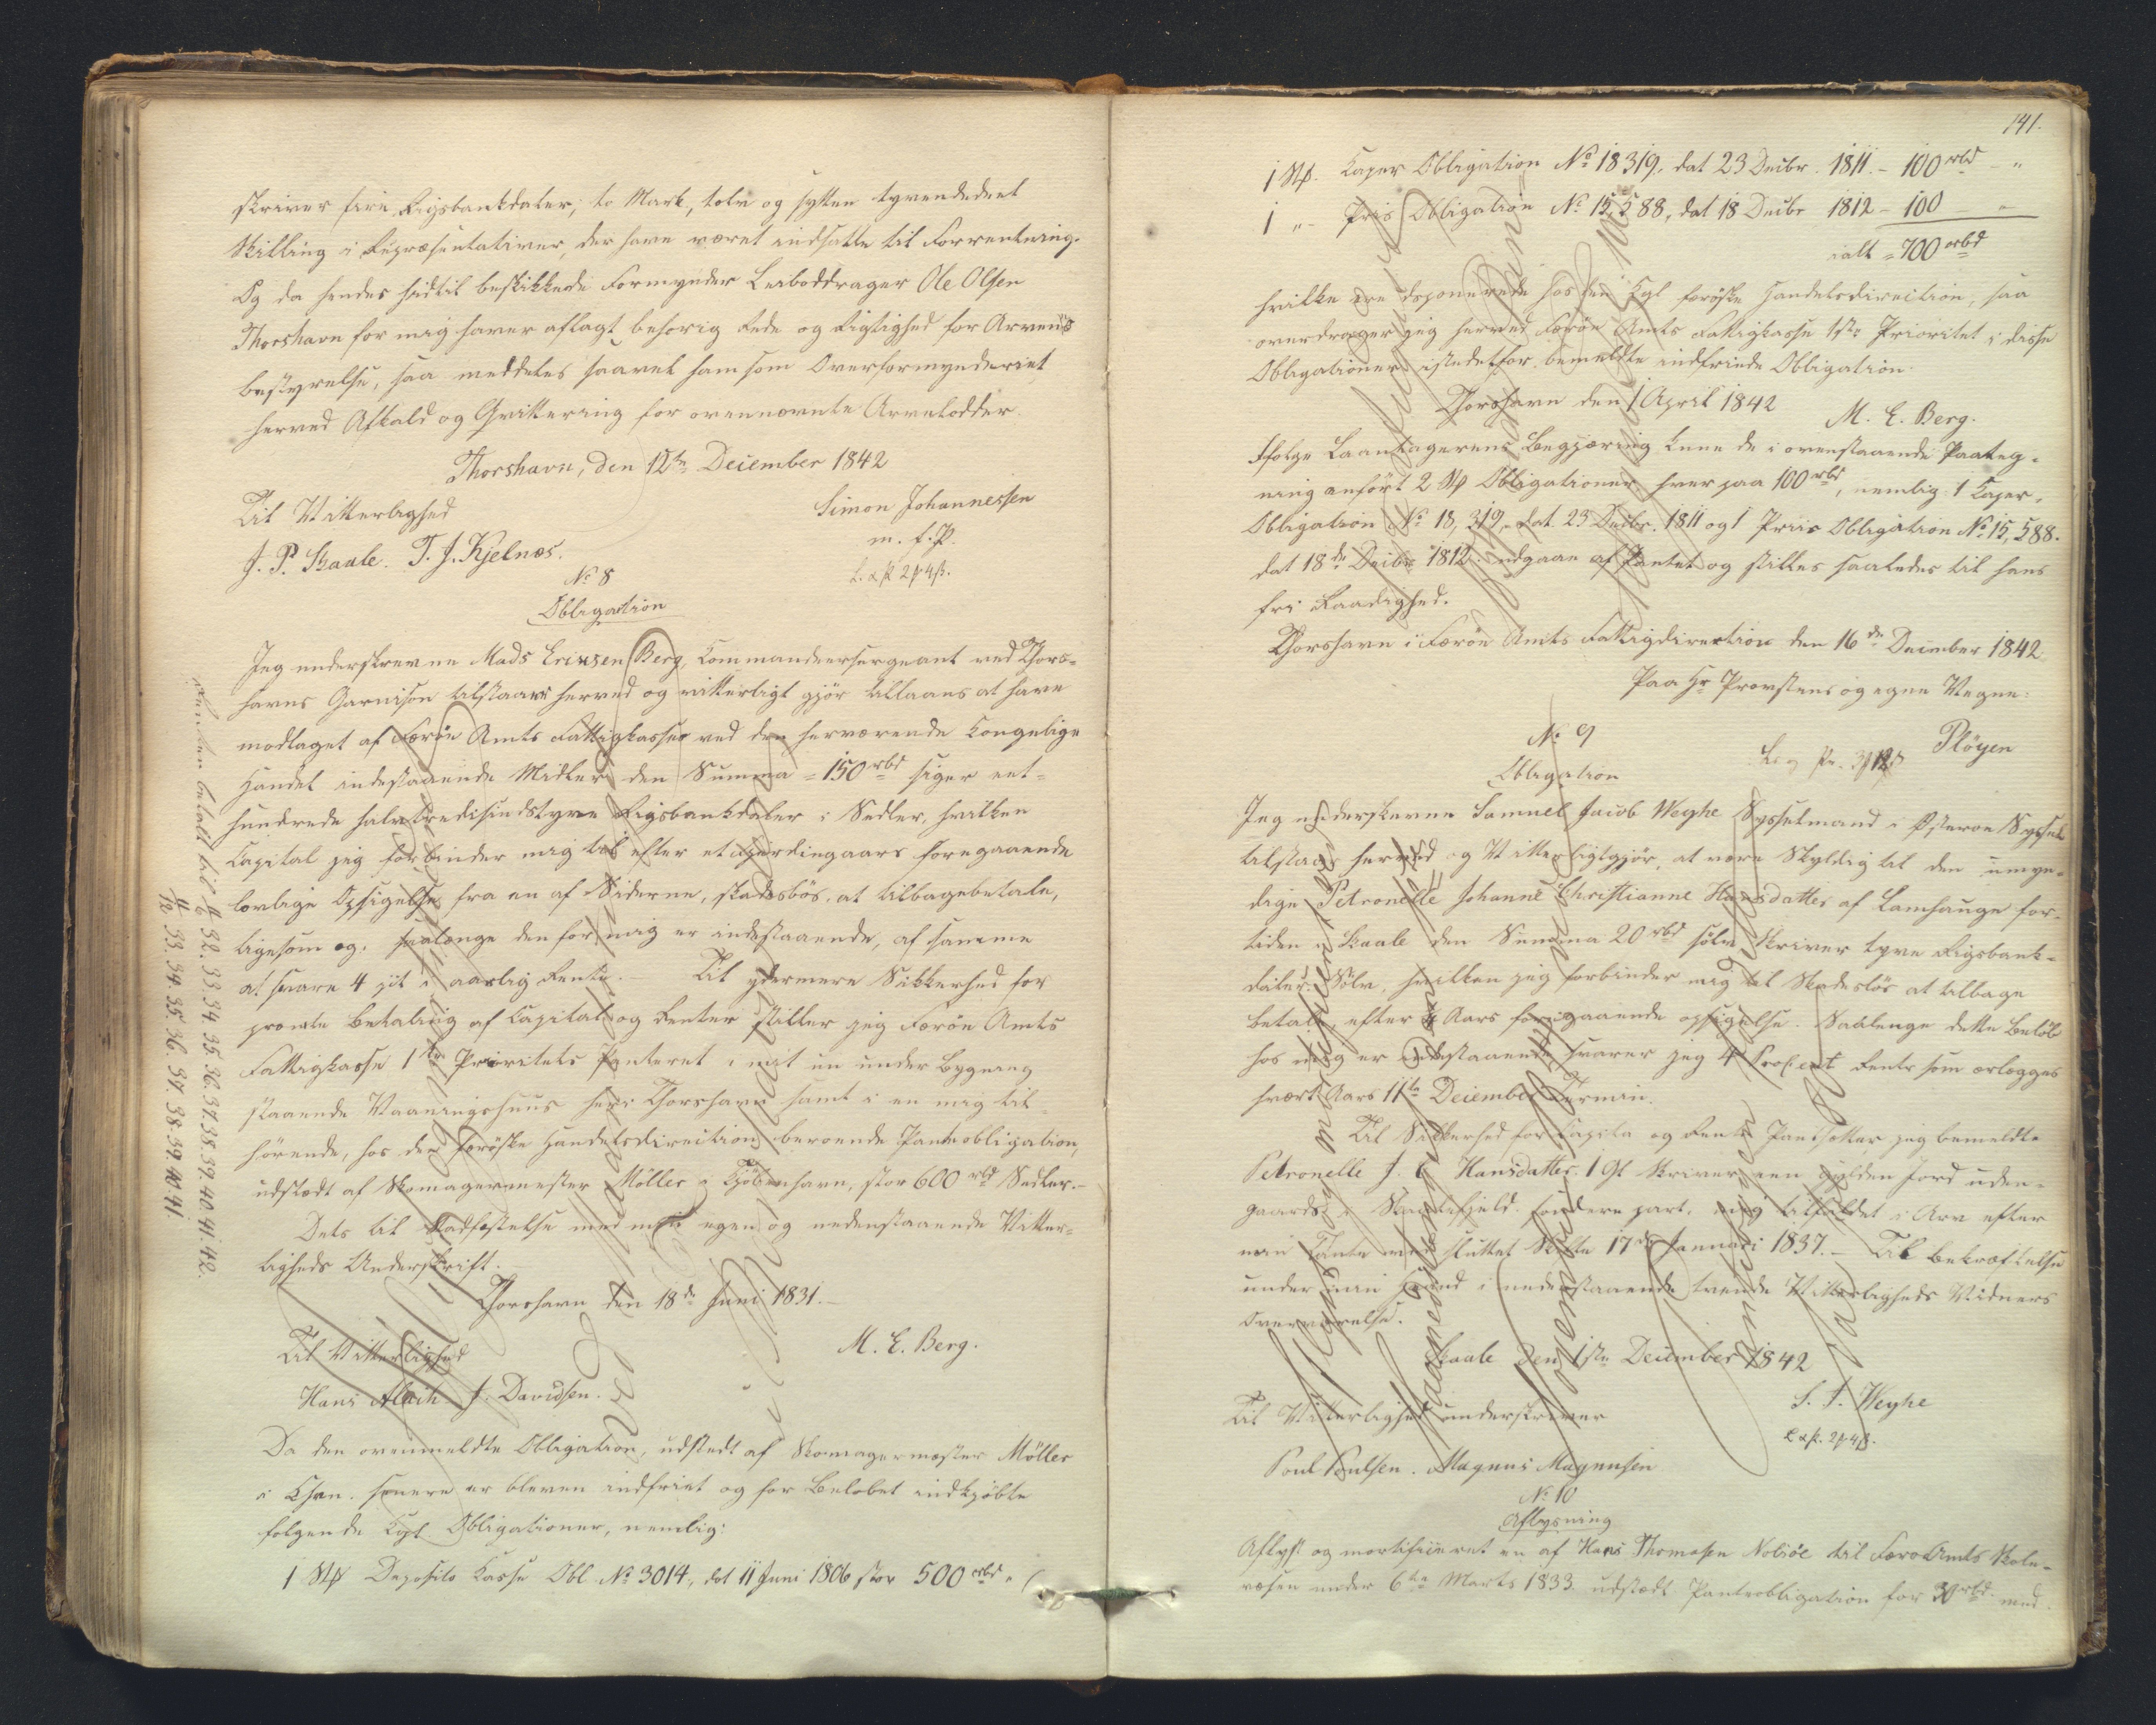 skriver fire Rigsbankdaler, to Mark, tolv og sytten tyvendedeel
Skilling i Repræsentativer, der have været indsatte til Forrentning.
Og da hendes hidtil beskikkede Formynder Leiboddrager Ole Olsen
Thorshavn for mig haver aflagt behørig Rede og Rigtighed for Arvens
bestyrelse, saa meddeles saavel ham som Overformynderiet
herved Afkald og Qvittering for ovennævnte Arvelodder.
Thorshavn, den 12te December 1842
Til Vitterlighed
Simon Johannessen
J. P. Skaale. T. J. Kjelnæs.
m. f. P.
L. & P. 2 ƒ 4 ß.
No 8
Obligation
Jeg underskrevne Mads Erixsen Berg, Commandeersergeant ved Thors-
havns Garnison tilstaaer herved og vitterligt gjør tillaans at have
modtaget af Færøe Amts Fattigkasses ved den herværende Kongelige
Handel indestaaende Midler den Summa = 150 rbd siger eet-
hundrede halvtredsindstyve Rigsbankdaler i Sedler, hvilken
Capital jeg forbinder mig til efter et fjerdingaars foregaaende
lovlige Opsigelse fra en af Siderne, skadesløs, at tilbagebetale,
ligesom og, saalænge den for mig er indestaaende, af samme
at svare 4 pCt i aarlig Rente. - Til ydermere Sikkerhed for
prompte Betaling af Capital og Renter stiller jeg Færøe Amts
Fattigkasse 1ste Prioritets Panteret i mit nu under Bygning
staaende Vaaningshuus her i Thorshavn samt i en mig til-
hørende, hos den færøske Handelsdirection beroende Panteobligation,
udstædt af Skomagermester Möller i Kjøbenhavn, stor 600 rbd Sedler.-
Dets til Stadfæstelse med min egen og nedenstaaende Vitter-
ligheds Underskrift.
Thorshavn den 18de Juni 1831.-
Til Vitterlighed
M. E. Berg.
Hans J. Davidsen.
Da den ovenmeldte Obligation, udstedt af Skomagermester Möller
i Khvn. senere er bleven indfriet og for Beløbet indkjøbte
følgende Kgl. Obligationer, nemlig:
1 Stk Deposito Kasse Obl. No 3014, dat 11 Juni 1806 stor 500 rbd
Renten betalt til 11/12 32. 33. 34. 35. 36. 37. 38. 39. 40. 41. 42.
11/12 33. 34. 35. 36. 37. 38. 39. 40. 41
141.
1 Stk. Caper Obligation No 18319, dat 23 Decbr. 1811. - 100 rbd - "
1 " - Priis Obligation No 15,588, dat 18 Decbr 1812 - 100 - "
ialt = 700 rbd
hvilke ere deponerede hos den Kgl færøske Handelsdirection, saa
overdrager jeg herved Færøe Amts Fattigkasse 1ste Prioritet i disse
Obligationer istedetfor bemeldte indfriede Obligation.
Thorshavn den 1 April 1842
M. E. Berg.
Ifølge Laantagerens Begjæring kunne de i ovenstaaende Paateg-
ning anført 2 Stk Obligationer, hver paa 100 rbd, nemlig: 1 Caper-
Obligation No 18,319, dat. 23 Decbr. 1811 og 1 Priis Obligation No 15,588.
dat 18de Decbr 1812. udgaae af Pantet og stilles saaledes til hans
fri Raadighed.
Thorshavn i Færøe Amts Fattigdirection den 16de December 1842.
Paa Hr Provstens og egne Vegne:
Plöyen
No 9
Obligation
Jeg underskrevne Samuel Jacob Weyhe Sysselmand i Østerøe Syssel
tilstaar herved og Vitterligtgjør, at være skyldig til den umyn-
dige Petronelle Johanne Christianne Hansdatter af Lamhauge for-
tiden i Skaale den Summa 20 rbd sølv skriver tyve Rigsbank-
daler Sølv, hvilken jeg forbinder mig til Skadesløs at tilbage
betale, efter Aars foregaaende opsigelse. Saalenge dette Beløb
hos mig er indestaaende, svarer jeg 4 Procent Rente som erlægges
hvert Aars 11te December Termin.
Til Sikkerhed for Capital og Rente Pantsetter jeg bemeldte
Petronelle J. C. Hansdatter. 1 Gl skriver een gylden Jord uden-
gaards i søndere part. mig tilfaldet i Arv efter
min Tante ved sluttet Skifte 17de Januari 1837. - Til bekræftelse
under min Haand i nedenstaaende tvende Vitterligheds Vidners
Overværelse.
Skaale den 1ste December 1842
S. J. Weyhe
Til Vitterlighed underskriver
L & P. 2 ƒ 4 ß.
Poul Poulsen. Magnus Magnusen
No 10
Aflysning
Aflyst og mortificeret en af Hans Thomasen Nolsöe til Færø Amts Skole-
væsen under 6te Marts 1833 udstædt Panteobligation for 30 rbd. med